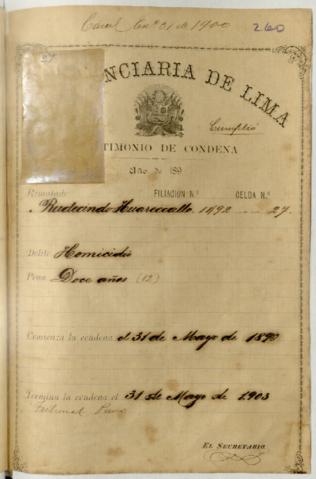 Enero 31 de 1900
260
NCIARIA DE LIMA
Cumplió
TIMONIO DE CONDENA
Año de 189
Rematado FILIACION N.º CELDA N.º
Rudecindo Huareccallo 1492 27
Delito Homicidio
Pena Doce años (12)
Comienza la condena el 31 de Mayo de 1890
Termina la condena el 31 de Mayo de 1903
Tribunal Puno
EL SECRETARIO